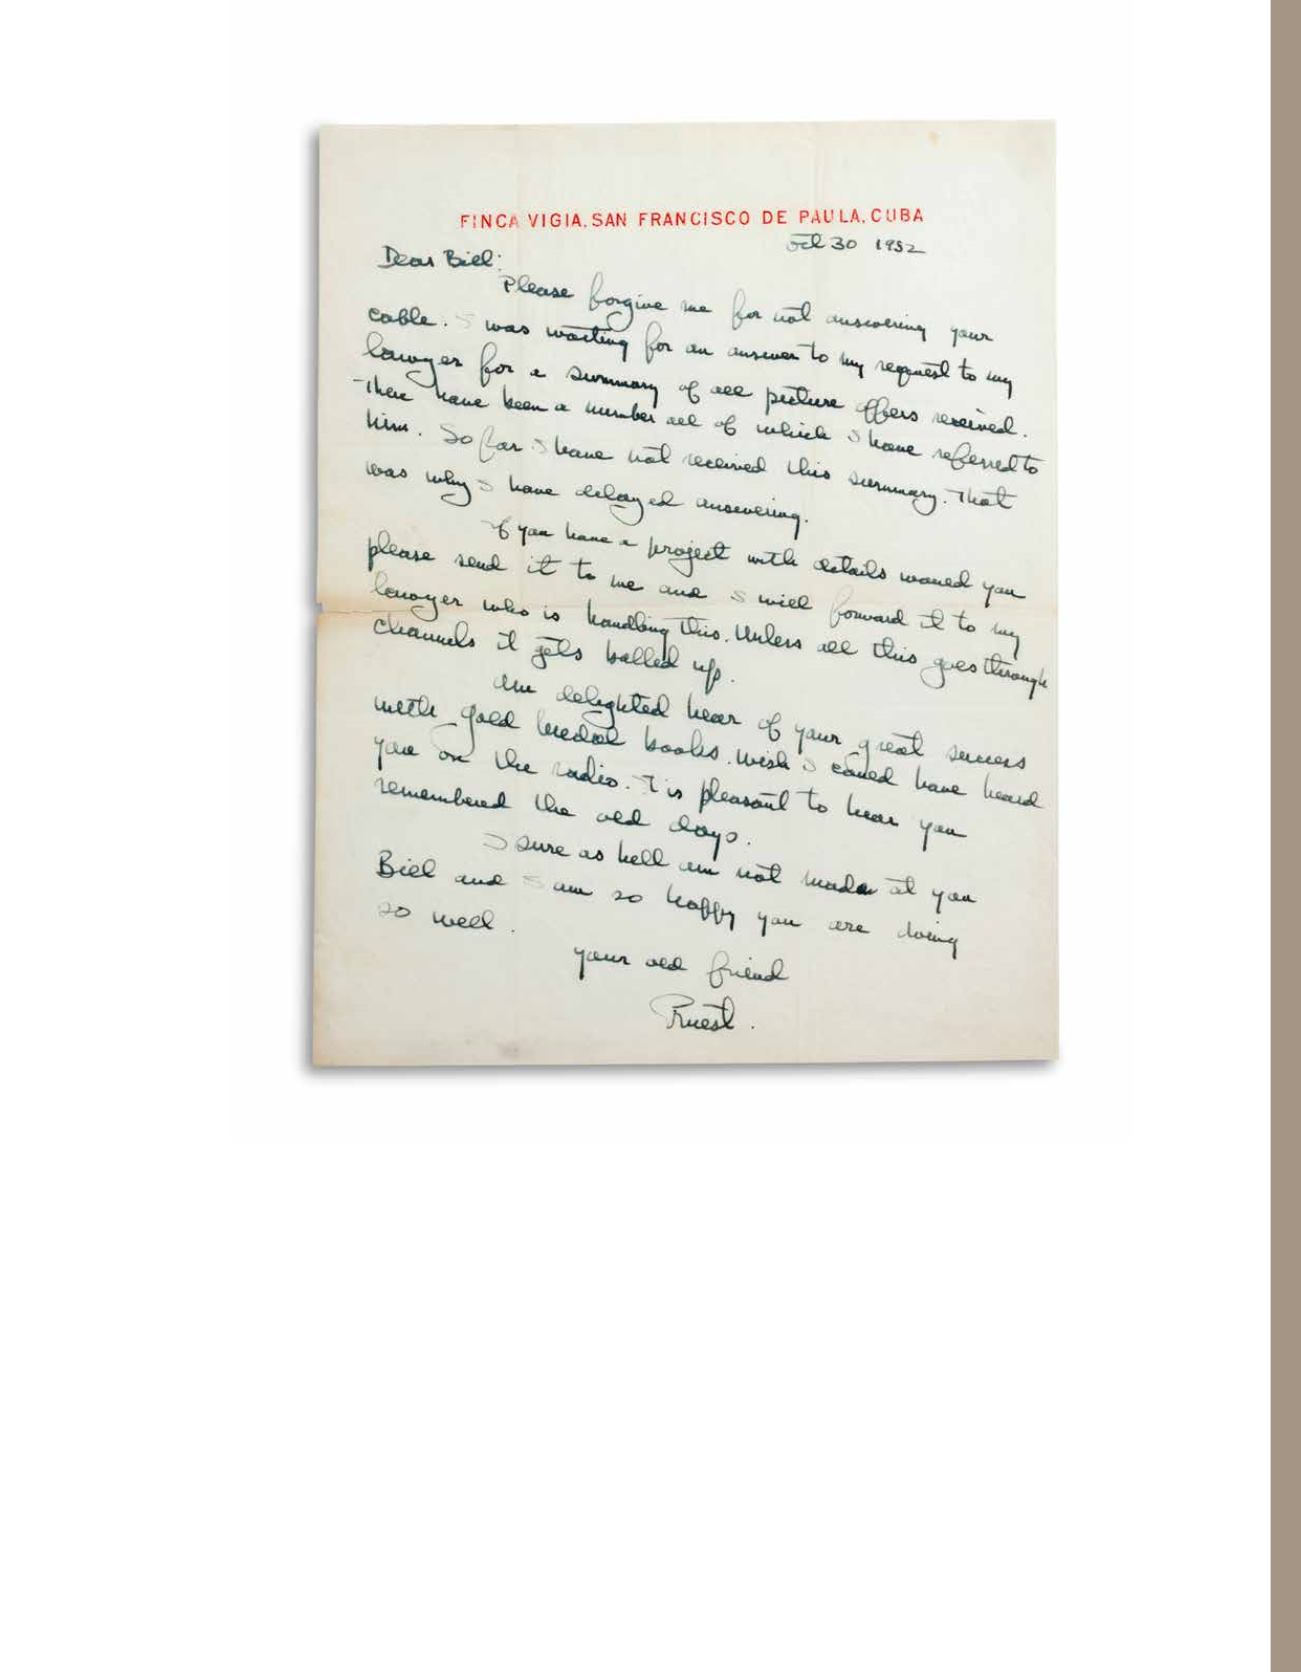 FINCA VIGIA, SAN FRANCISCO DE PAULA, CUBA
Oct 30 1952
Dear Bill:
Please forgive me for not answering your
cable. I was waiting for an answer to my request to my
lawyer for a summary of all picture offers received.
There have been a number all of which I have referred to
him. So far I have not received this summary. That
was why I have delayed answering.
If you have a project with details would you
please send it to me and I will forward it to my
lawyer who is handling this. Unless all this goes through
channels it gets balled up.
Am delighted hear of your great success
with gold medal books. Wish I could have heard
you on the radio. It is pleasant to hear you
remembered the old days.
I sure as hell am not mad at you
Bill and I am so happy you are doing
so well.
Your old friend
Ernest.